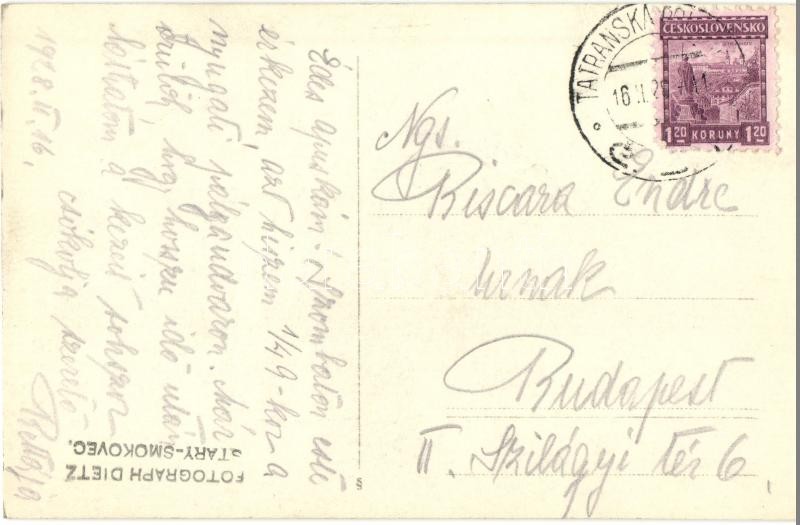 Édes Apuskám! Szombaton este
érkezem, azt hiszem 1/49-kor a
nyugati pályaudvaron. Már
örülök hogy hosszu idő után
láthatom a kezeit sokszor
csókolja szerető
1928. II. 16.
FOTOGRAPH DIETZ
STARY-SMOKOVEC.
TATRANSKÁ
16.II.28
ČESKOSLOVENSKO
1 20 KORUNY 1 20
Ngs.
Biscara Endre
urnak
Budapest
II. Szilágyi tér 6